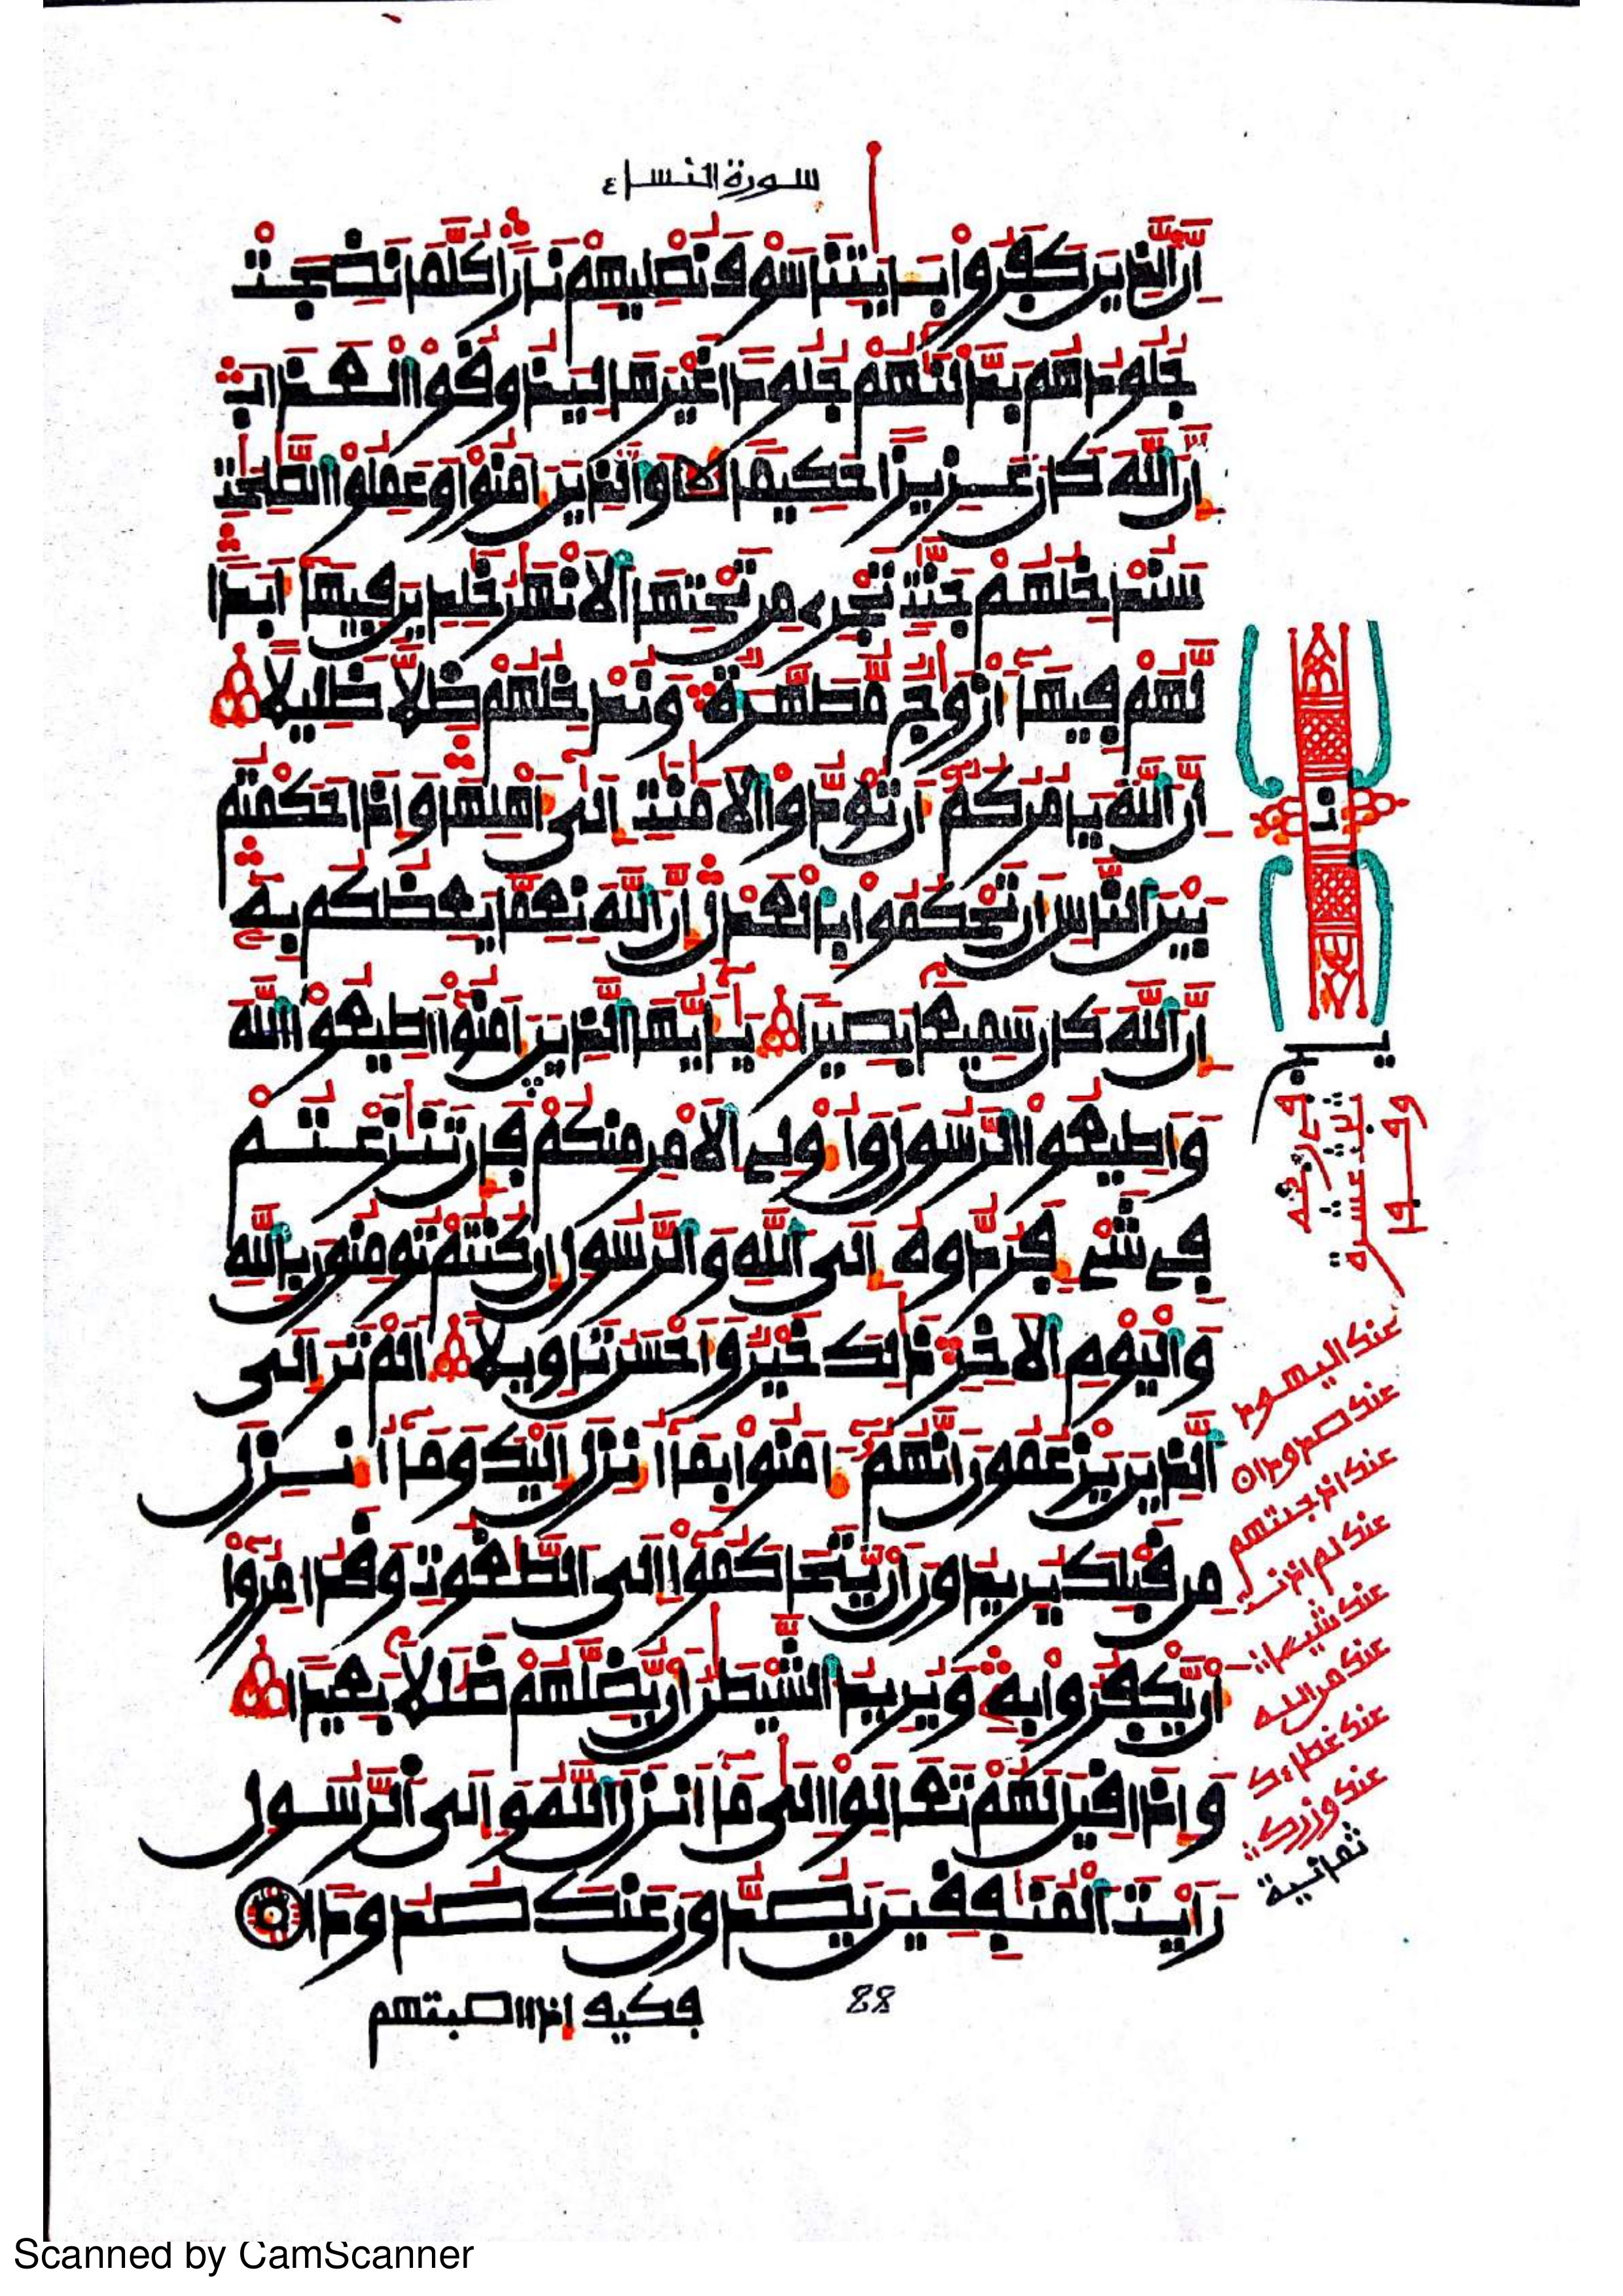 سورة النساء ٤
إن الذين كفروا بـايتنا سوف نصليهم نارا كلما نضجت
جلودهم بدلنهم جلودا غيرها ليذوقوا العذاب
إن الله كان عزيزا حكيما والذين ءامنوا وعملوا الصلحت
سندخلهم جنت تجرى من تحتها الانهر خلدين فيها أبدا
لهم فيها أزوج مطهرة وندخلهم ظلا ظليلا
إن الله يامركم أن تودوا الامنت إلى أهلها وإذا حكمتم
بين الناس أن تحكموا بالعدل إن الله نعما يعظكم به
إن الله كان سميعا بصيرا يأيها الذين ءامنوا أطيعوا الله
وأطيعوا الرسول وأولى الامر منكم فإن تنزعتم
فى شىء فردوه إلى الله والرسول إن كنتم تومنون بالله
واليوم الاخر ذلك خير وأحسن تاويلا ألم تر إلى
الذين يزعمون أنهم ءامنوا بما أنزل إليك وما أنزل
من قبلك يريدون أن يتحاكموا إلى الطغوت وقد أمروا
أن يكفروا به ويريد الشيطن أن يضلهم ضللا بعيدا
وإذا قيل لهم تعالوا إلى ما أنزل الله وإلى الرسول
رأيت المنفقين يصدون عنك صدودا
فكيف إذا أصبتهم
88
ثمانية
Scanned by CamScanner